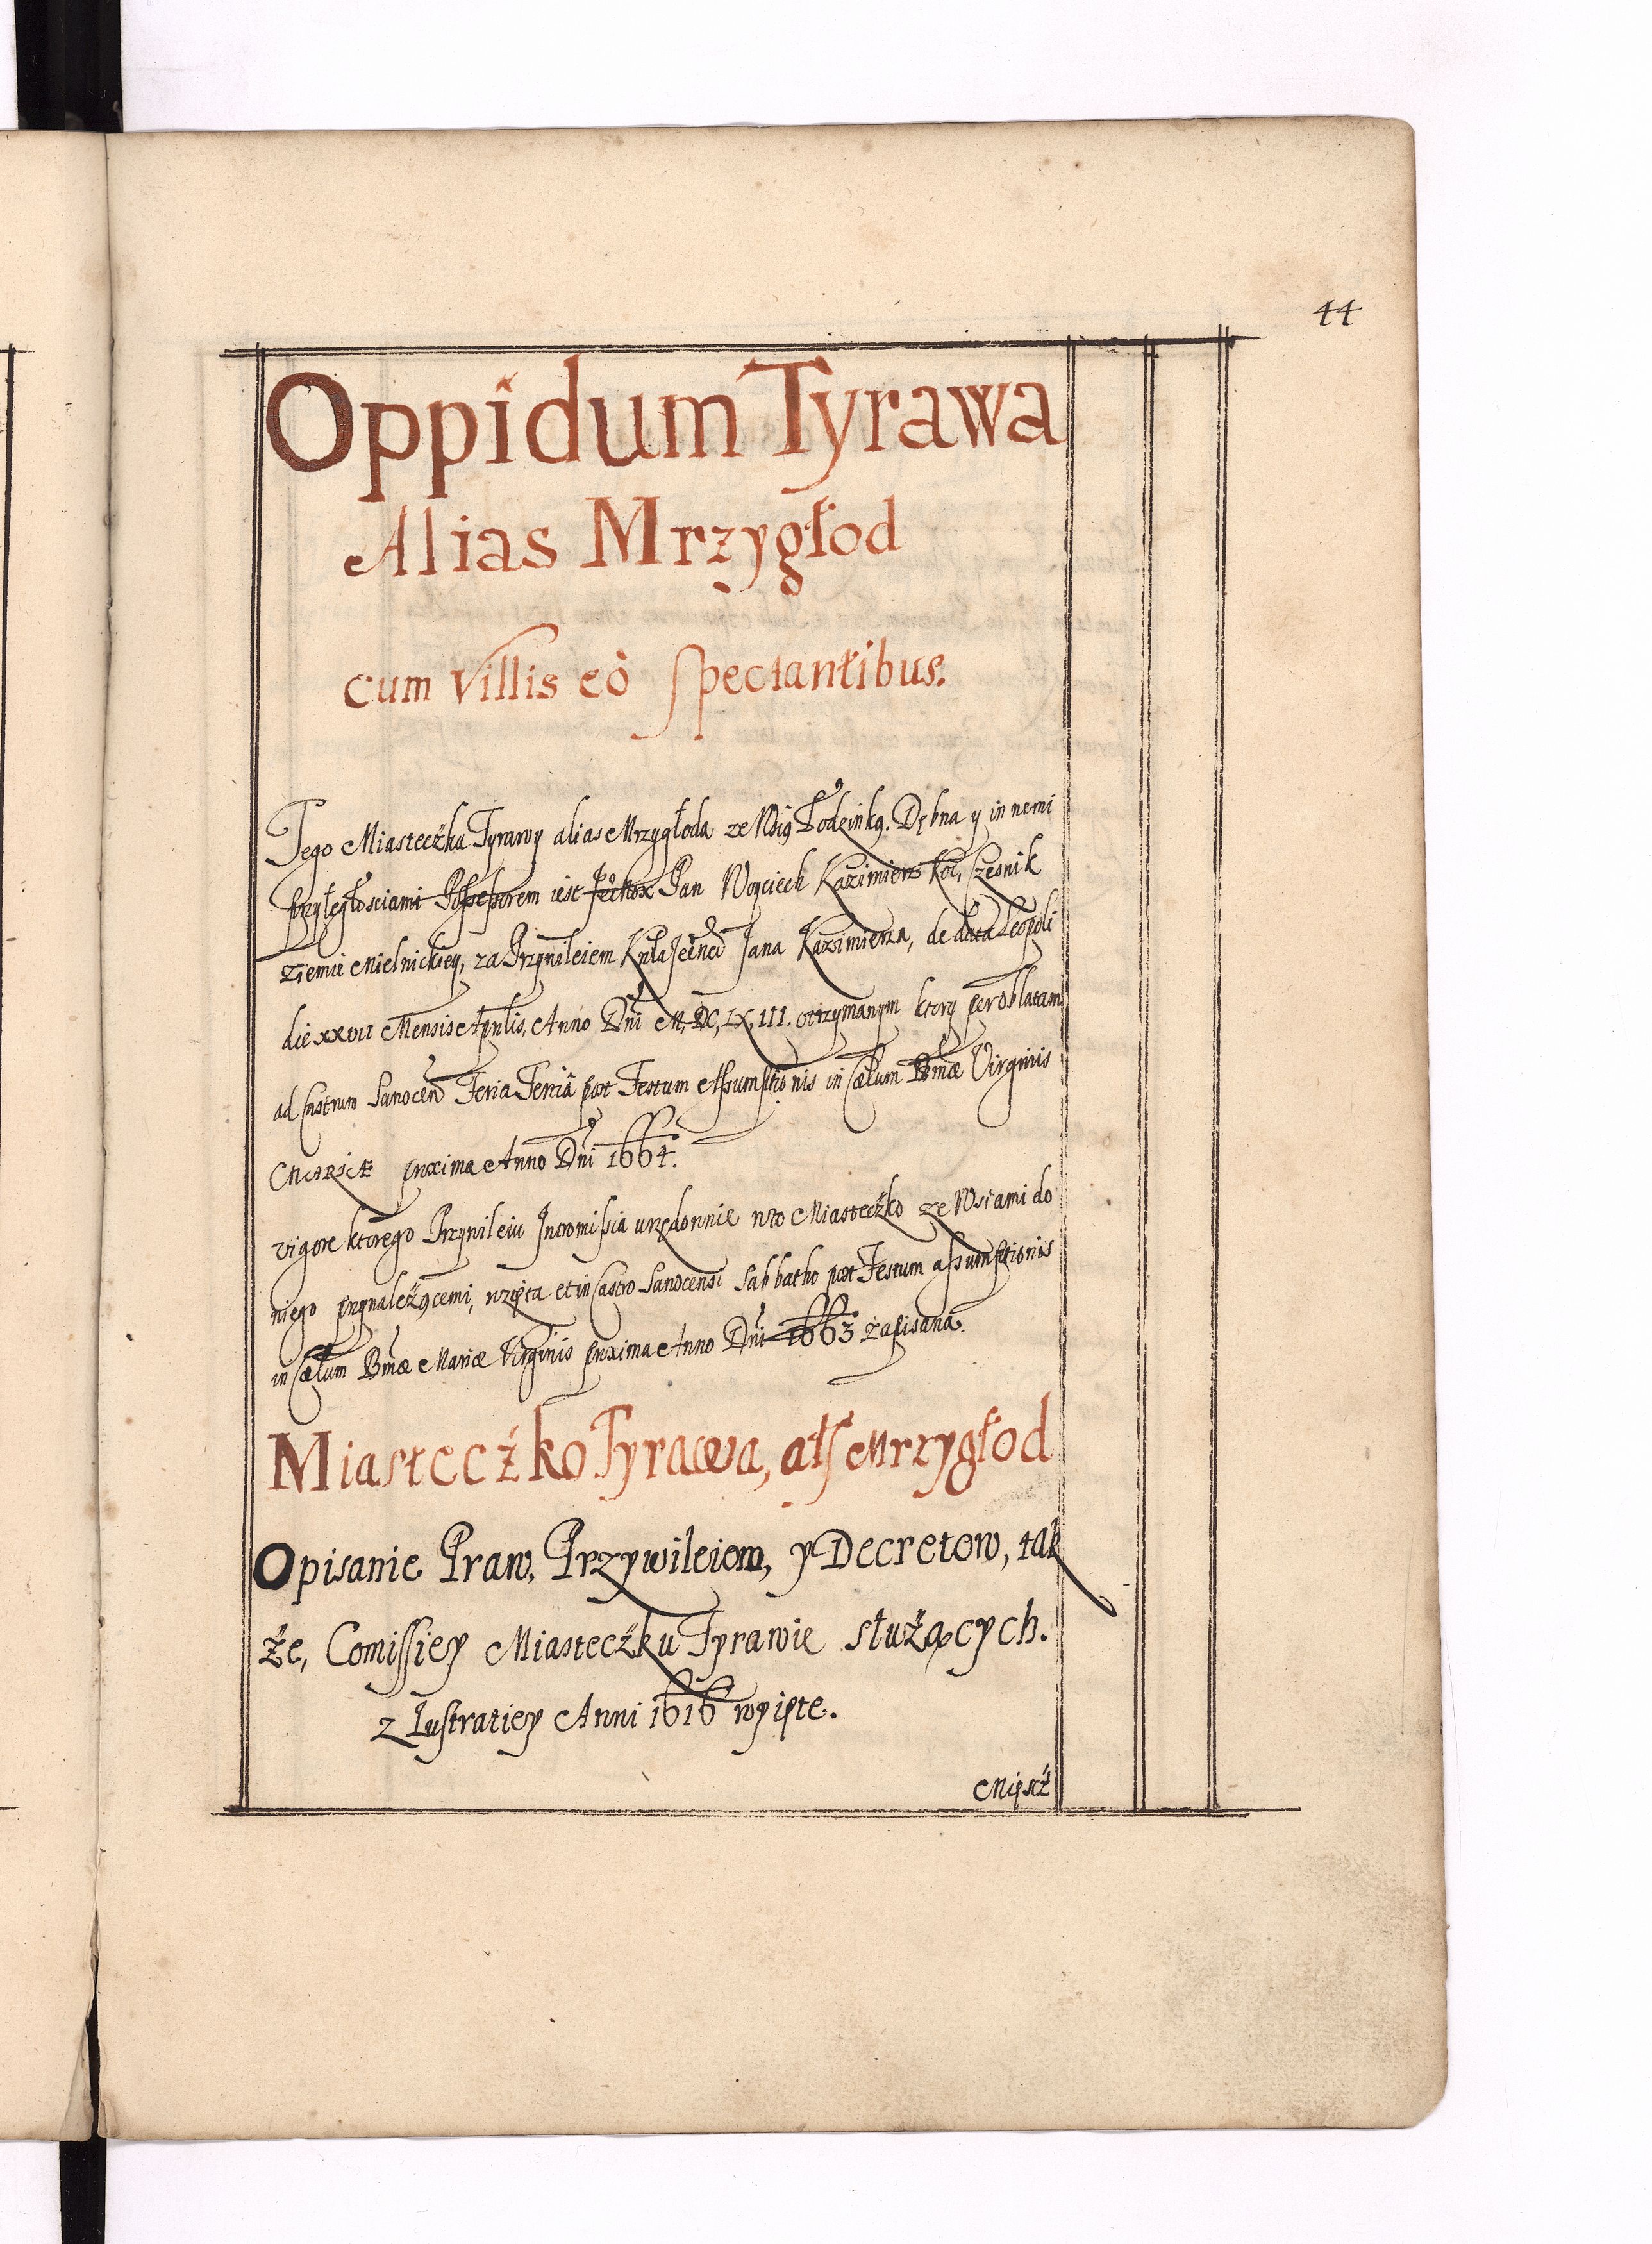 44
Oppidum Tyrawa
Alias Mrzygłod
cum Villis eò spectantibus.
Tego Miasteczka Tyrawy alias Mrzygłoda ze Wsią Łodzinką. Dębna y in nemi
przyległosciami Possessorem iest Pan Woyciech Kazimierz Koc, Czesnik
ziemie Mielnickiey, za Przywileiem Jana Kazimierza, de data Leopoli
die xxvii Mensis Aprilis, Anno Dni M, DC, LX, III. otrzymanym ktory per oblatam
ad Castrum Sanocen Feria Tertiâ post Festum Assumptionis in Cælum Bmæ Virginis
MARIÆ proxima Anno Dni 1664.
vigore ktorego Przywileiu Intromissia urzędownie w to Miasteczko ze Wsiami do
niego przynależącemi, wzięta et in Castro Sanocensi Sabbatho post Festum assumptionis
in Cælum Bmæ Mariæ Virginis proxima Anno Dni 1663 zapisana.
Miasteczko Tyrawa, als Mrzygłod
Opisanie Praw, Przywileiow, y Decretow, tak
że, Comissiey Miasteczku Tyrawie służących.
z Lustratiey Anni 1616 wyięte.
Mięscz